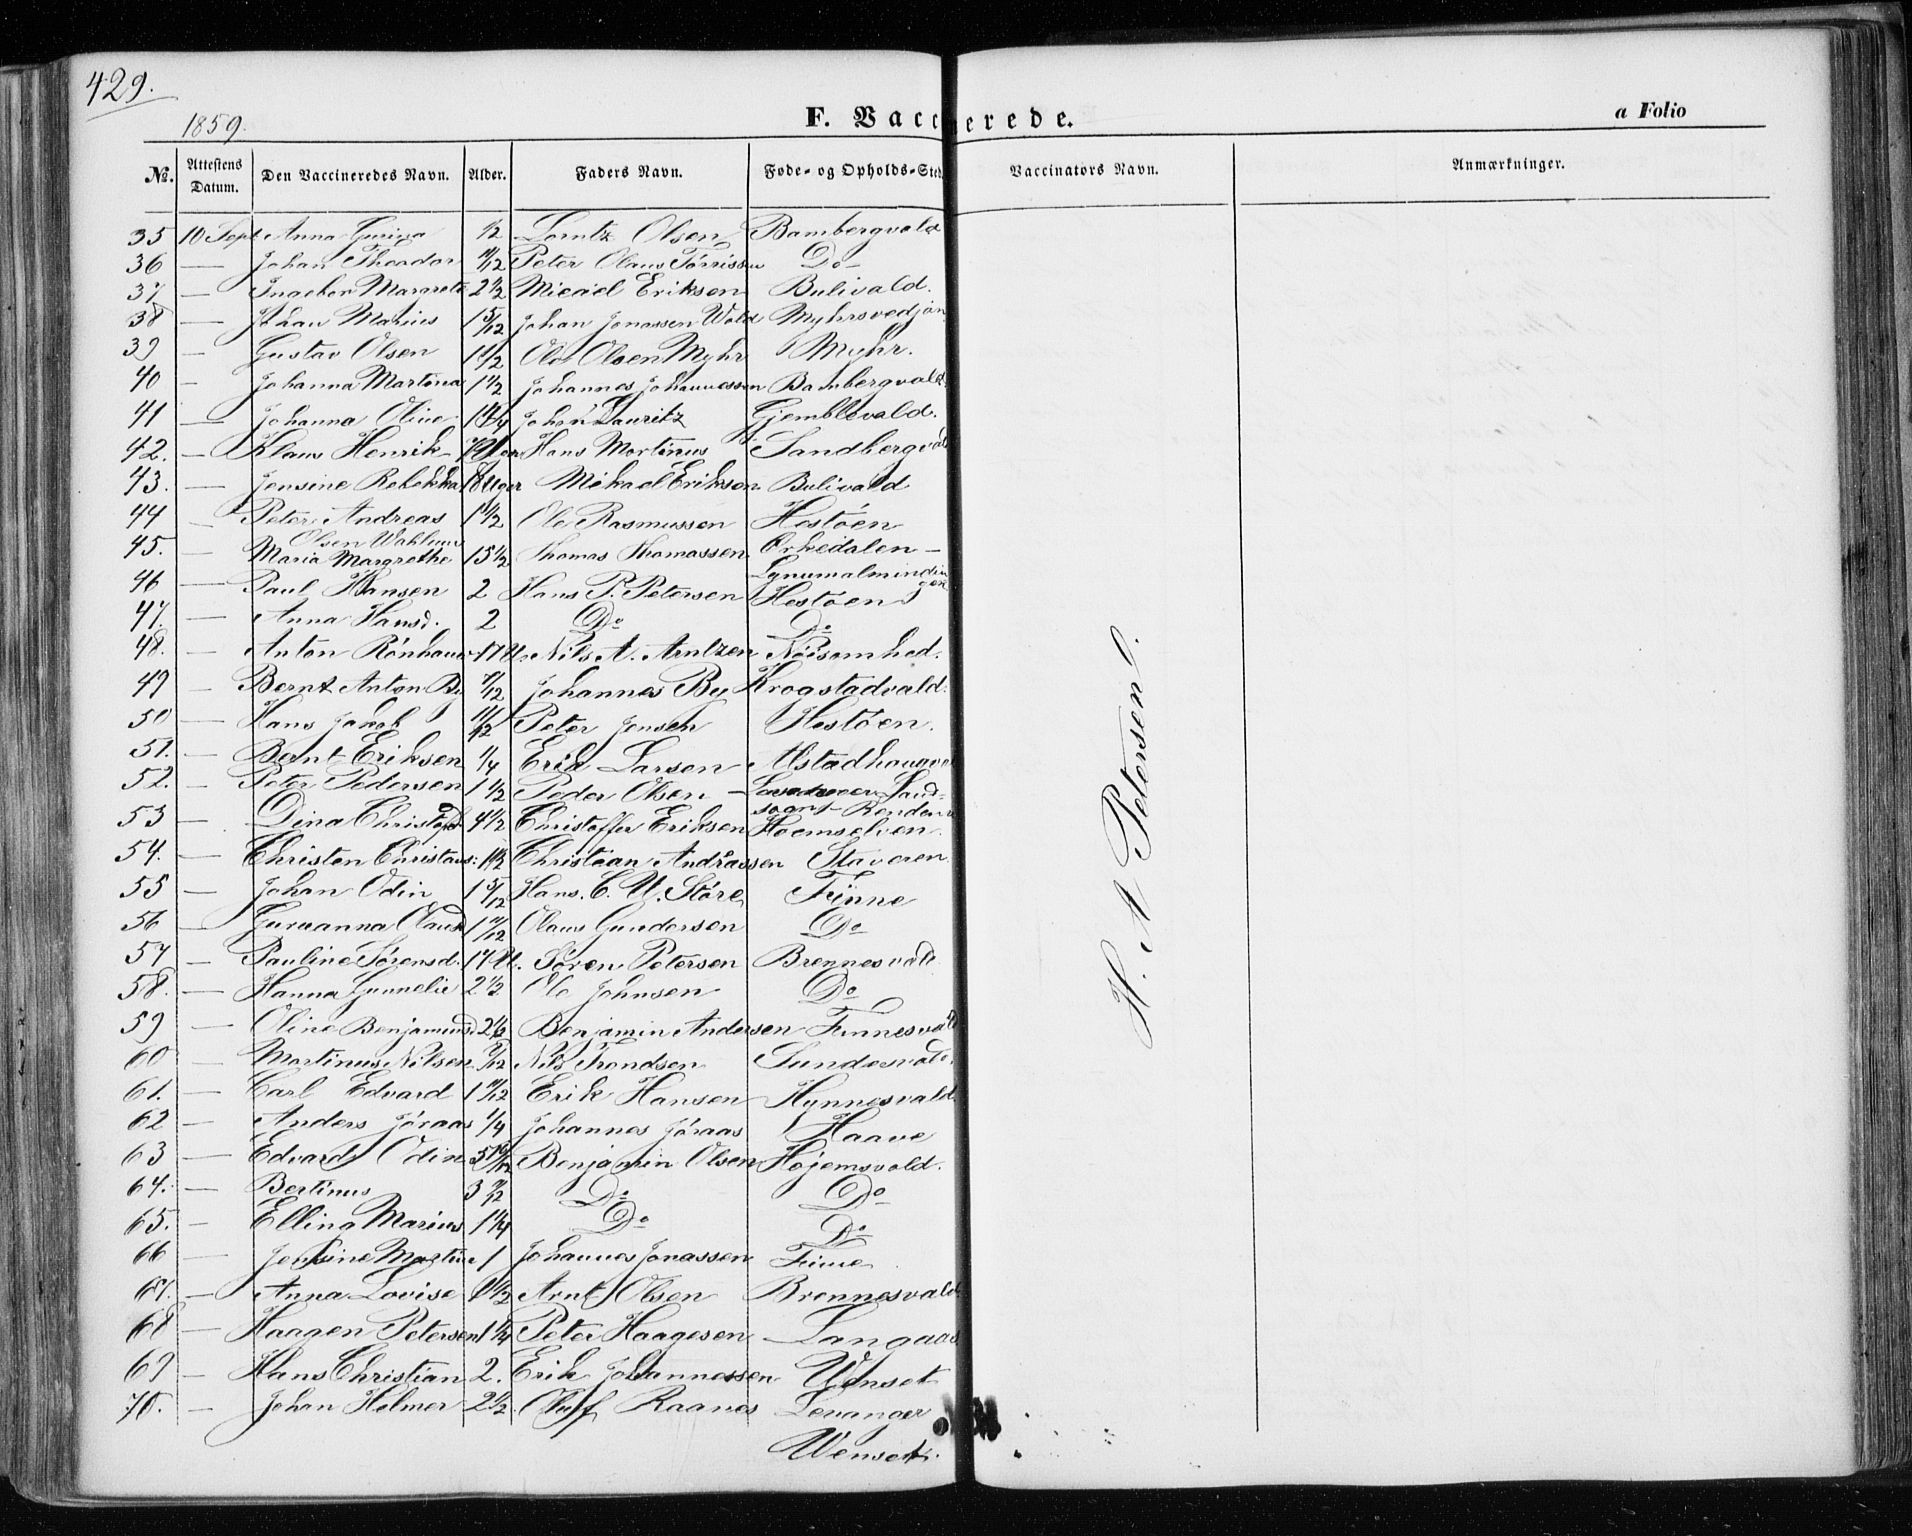 429.
1859.
F. Vaccinerede.
a Folio
No. Attestens Datum. Den Vaccineredes Navn. Alder. Faders Navn. Føde- og Opholds-Sted Vaccinators Navn. Anmærkninger.
35 10 Sept Anna Gurina 1/2 Lorntz Olsen Bambergvald
36 — Johan Theodor 11/12 Peter Olaus Tørrissen Do
37 — Ingebor Margrete 2 1/2 Micael Eriksen Bulivald.
38 — Johan Marius 1 5/12 Johan Jonassen Wold Myhrsvedjan
39 — Gustav Olsen 1 1/2 Ole Olsen Myhr Myhr.
40 — Johanna Martina 1 1/2 Johannes Johannessen Bambergvald
41 — Johanna Oline 1 1/4 Johan Lauritz Gjemblevald.
42. — Klaus Henrik Hans Martinus Sandbergvald
43. — Jensine Rebekka 18 Uger Mikael Eriksen Bulivald
44 — Peter Andreas 1 1/2 Ole Rasmussen Hestøen
45. — Olsen Wahlum Maria Margrethe 15 1/2 Thomas Thomassen Orkedalen —
46 — Paul Hansen 2 Hans P. Petersen Hestøen
47. — Anna Hansd. 2 Do Do
48. — Anton Rønhaug 17 U. Nils A. Arntzen Nøisomhed.
49 — Bernt Anton By 7/12 Johannes By Krogstadvald
50 — Hans Jakob 11/12 Peter Jensen Hestøen.
51. — Bernt Eriksen 1/4 Erik Larsen Alstadhougva
52. — Peter Pedersen 1 1/2 Peder Olsen —
53 — Dina Christofd 4 1/2 Christoffer Eriksen Hoemselven.
54. — Christen Christians: 1 1/2 Christian Andreassen Staveren
55 — Johan Odin 1 5/12 Hans. C. U. Støre Finne
56 — Gurianna Olausd 1 11/12 Olaus Gundersen Do
57 — Pauline Sørensd. 17 U. Søren Petersen Brennesvald
58. — Hanna Gunnelie 2 1/2 Ole Johnsen Do
59 — Oline Benjaminsd 2 1/2 Benjamin Andersen Finnesvald
60 — Martinus Nilsen 7/12 Nils Trondsen Sundesvald.
61. — Carl Edvard 1 11/12 Erik Hansen Hynnesvald
62 — Anders Jøraas 1/4 Johannes Jøraas Haave
63 — Edvard Odin 5 10/12 Benjamin Olsen Højemsvald.
64. — Bertinus 3 7/12 Do Do
65. — Ellina Marius 1 1/4 Do Do
66 — Jensine Martine 1 Johannes Jonassen Finne
67. — Anna Lovise 1 1/2 Arnt Olsen Brennesvald.
68 — Haagen Petersen 1 1/4 Peter Haagesen Langaas
69 — Hans Christian 2. Erik Johannessen Wenset
70. — Johan Helmer 2 1/2 Oluf Raanes Levanger
Wenset.
H. A Petersen